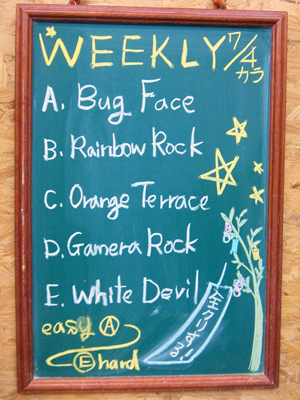 WEEKLY 7/4
カラ
A. Bug Face
B. Rainbow Rock
C. Orange Terrace
D. Gamera Rock
E. White Devil
easy A
E hard